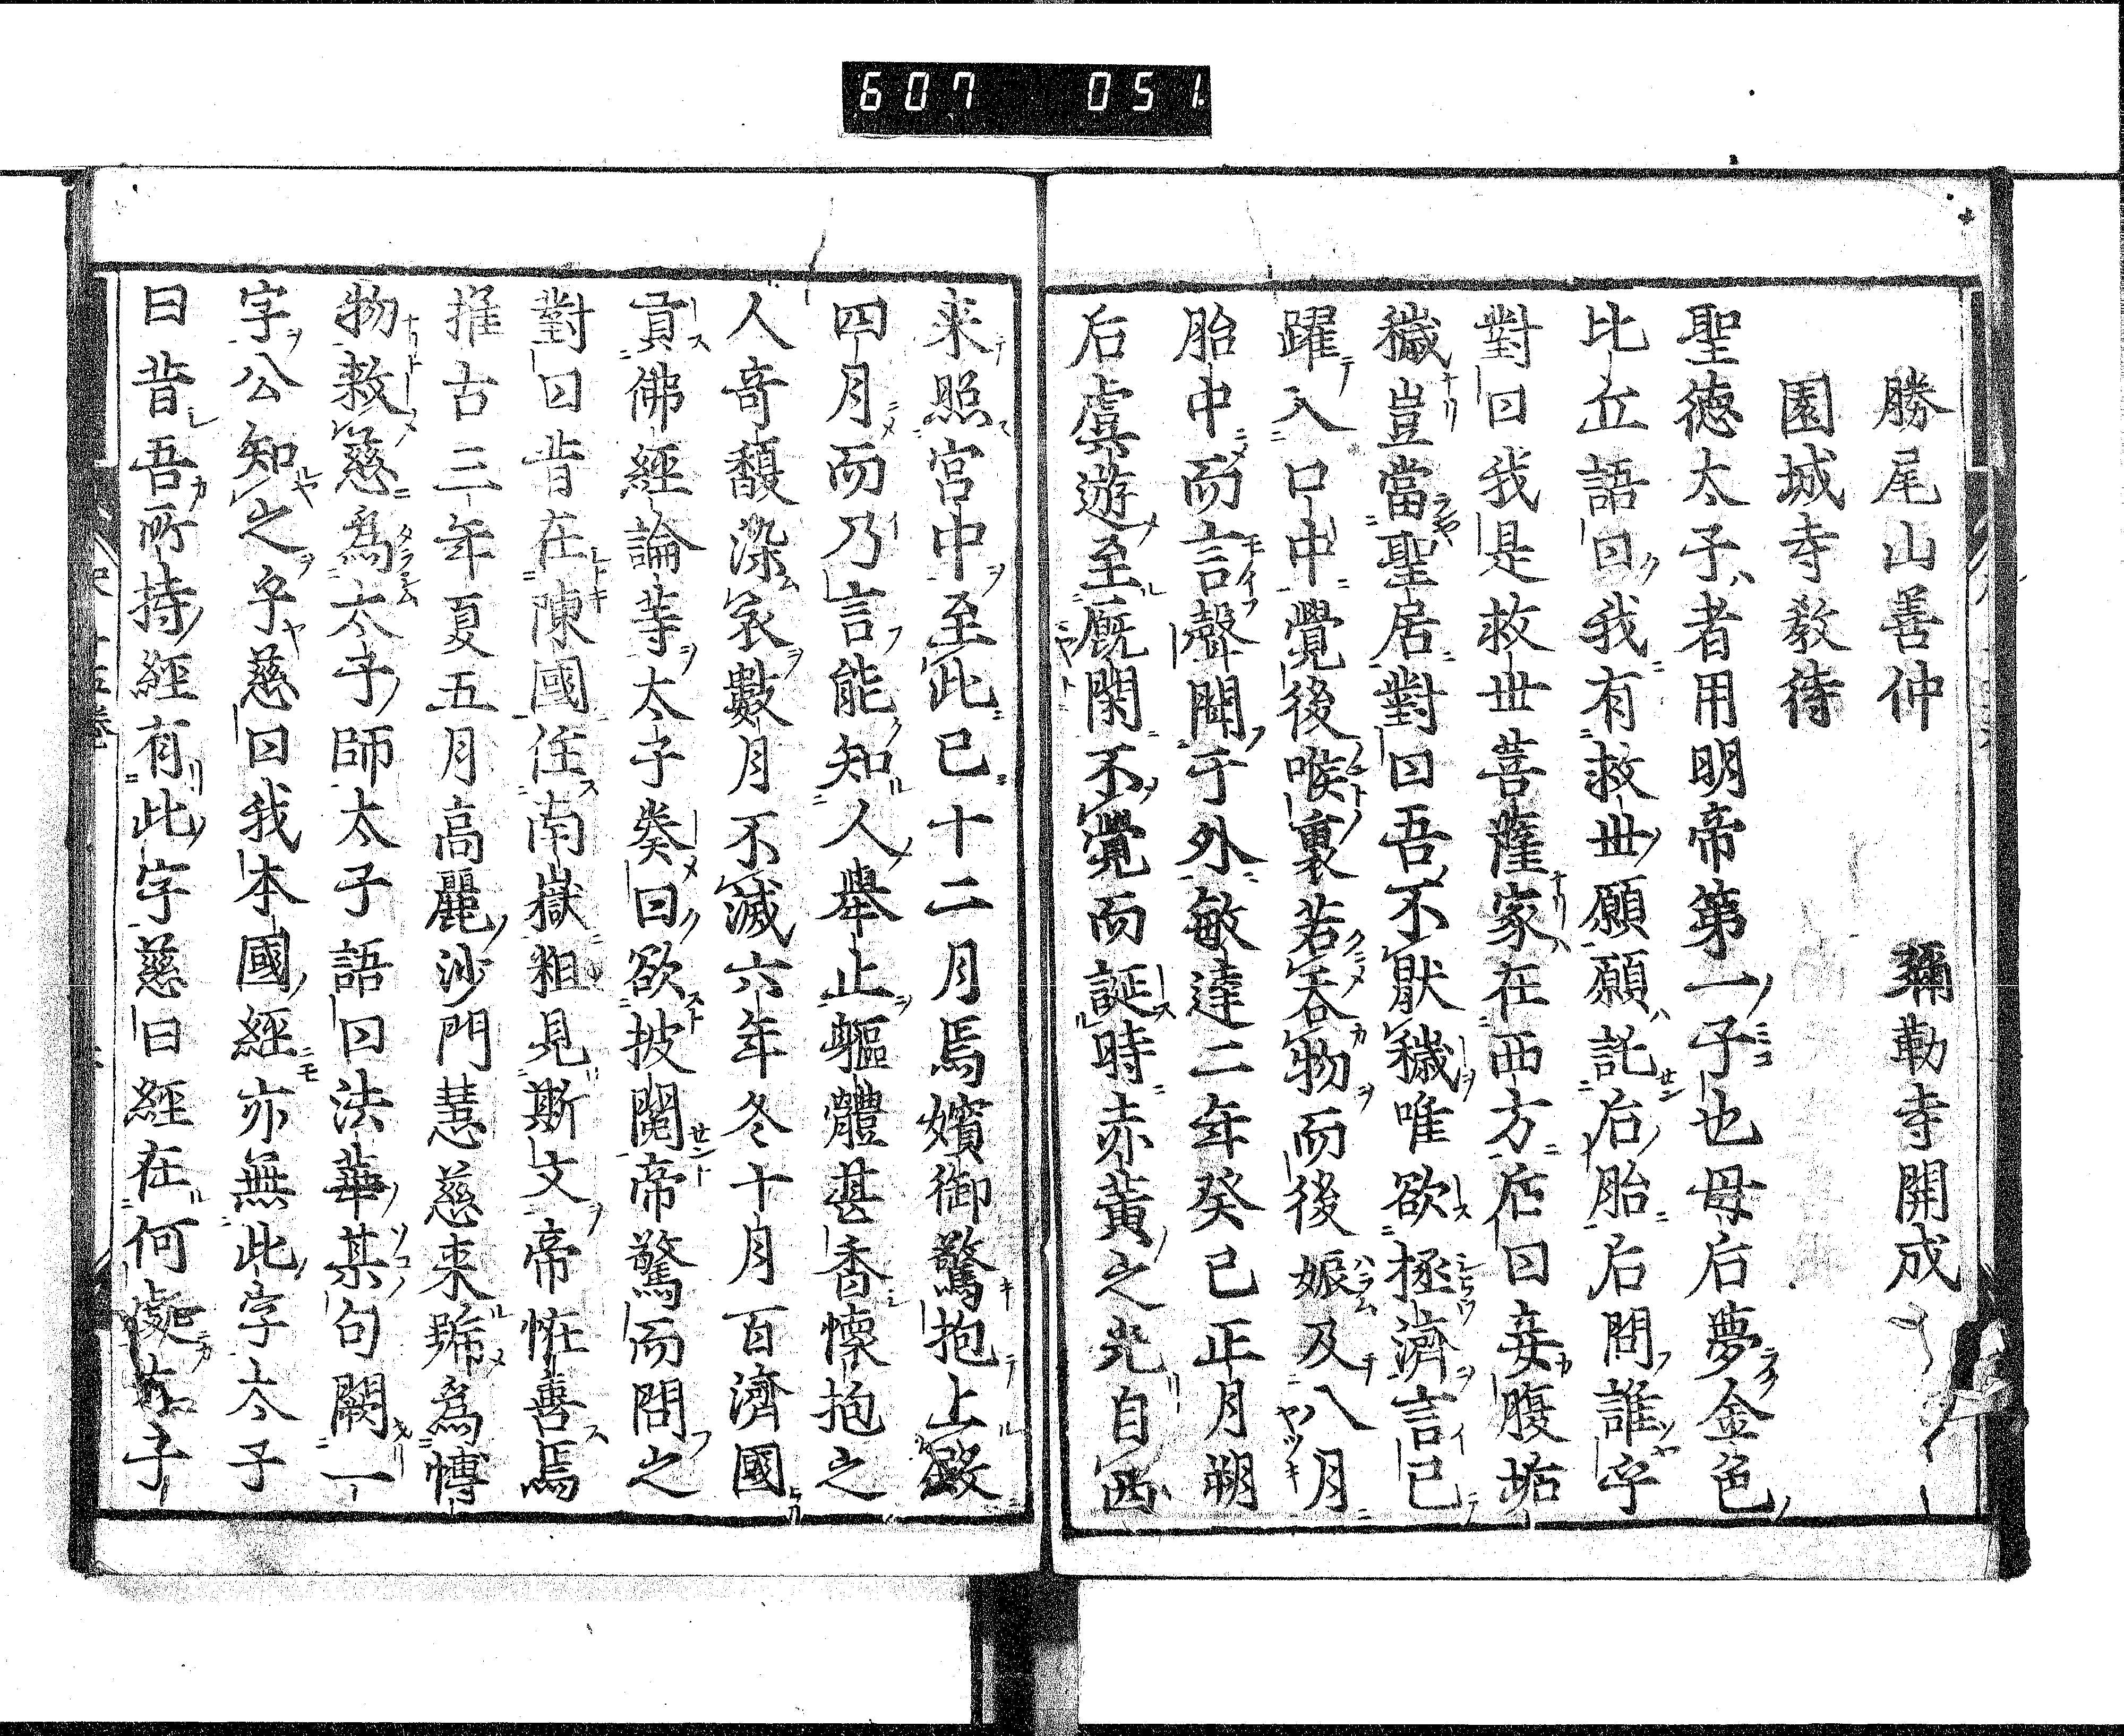 607 051
勝尾山善仲 彌勒寺開成
園城寺教待
聖徳太子者用明帝第一子也母后夢金色
比丘語曰我有救世願願託后胎后問誰字
對曰我是救世菩薩家在西方后曰妾腹垢
穢豈當聖居對曰吾不猒穢唯欲極濟言已
躍入口中覺後喉裏若呑物而後娠及八月
胎中而言聲聞于外敏達二年癸巳正月朔
后虞遊至厩閑不覺而誕時赤黄之光自西
来照宮中至此已十二月焉嬪御驚抱上殿
四月而乃言能知人舉止軀體甚香懷抱之
人奇馥染衣數月不滅六年冬十月百濟國
貢佛經論等太子奏曰欲披閲帝驚而問之
對曰昔在陳國住南嶽粗見斯文帝恠善焉
推古三年夏五月高麗沙門慧慈来歸爲博
物救慈爲太子師太子語曰法華某句闕一
字公知之乎慈曰我本國經亦無此字太子
曰昔吾所持經有此字慈曰經在何處太子